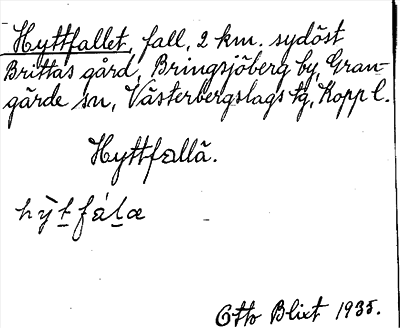 Hyttfallet, fall, 2 km. sydöst
Brittas gård, Bringsjöberg by, Gran-
gärde sn, Västerbergslags tg, Kopp l.
Hyttfallä.
hỳt̠fál̠æ
Otto Blixt 1935.